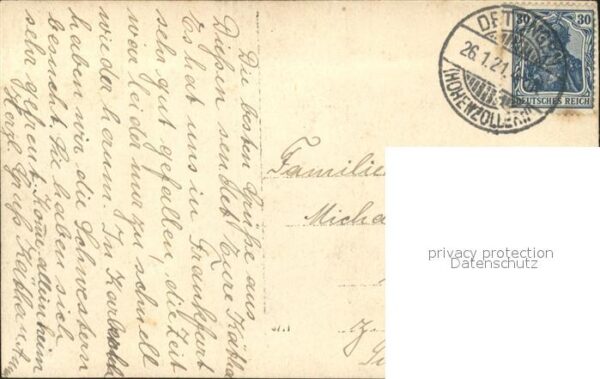 Die besten Grüße aus
Dießen sendet Eure Käthe
Es hat uns in Frankfurt
sehr gut gefallen, die Zeit
war leider nur zu schnell
wieder herum. In Karlsruhe
haben wir die Schwestern
besucht. Sie haben sich
sehr gefreut. Komme allein heim
Herzl. Gruß Käthe
Familie
Micha
DETTINGEN
26.1.21.
(HOHENZOLLERN)
30 30
DEUTSCHES REICH
privacy protection
Datenschutz